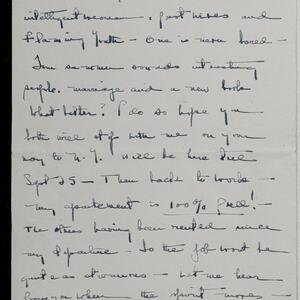 intelligent woman, good wives and
Flaming Youth – One is never bored –
people – marriage and a new book
What better? I do so hope you
both will stop with me on your
way to N.Y. Will be here till
Sept 25 – Then back to work –
my apartment is 100% full! –
The others having been rented since
my departure – So the job won't be
quite as strenuous – Let me hear
from you when the spirit moves –